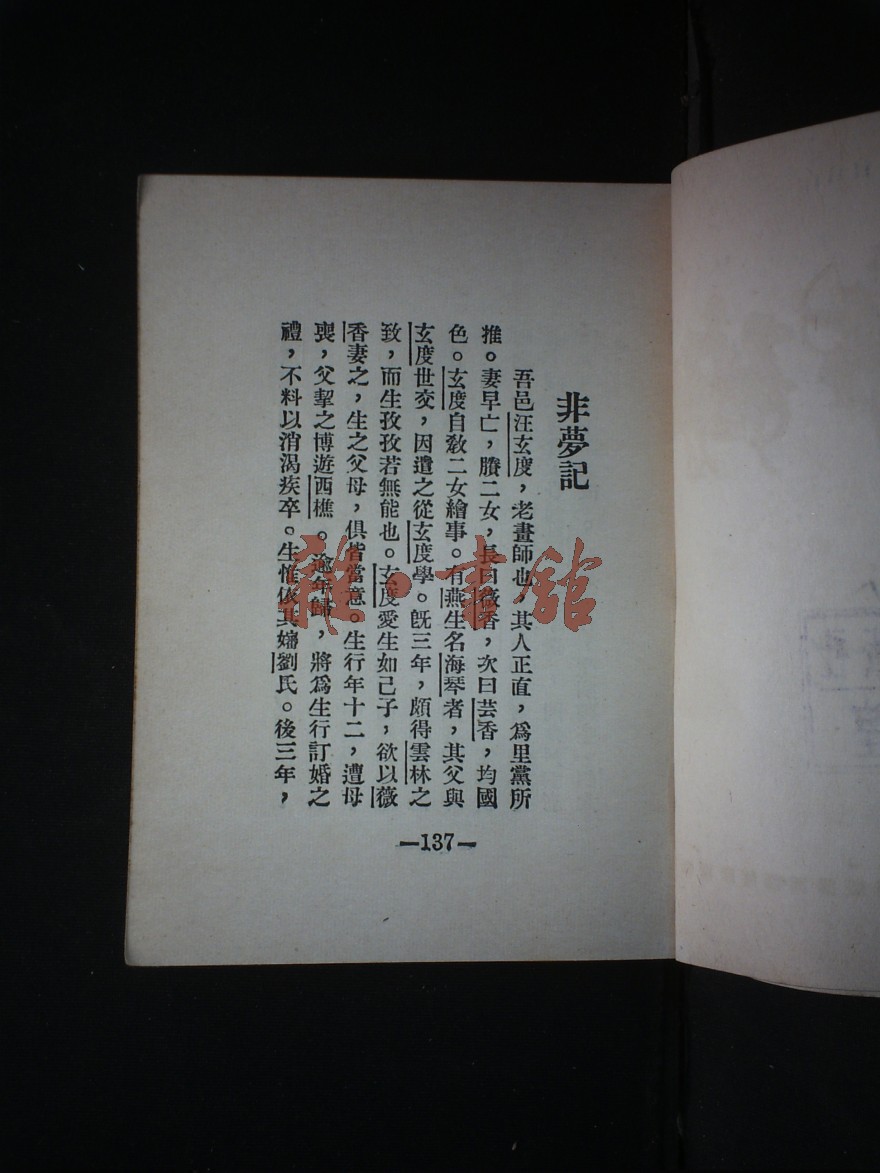 非夢記
吾邑汪玄度，老畫師也，其人正直，爲里黨所
推。妻早亡，賸二女，長曰薇香，次曰芸香，均國
色。玄度自教二女繪事。有燕生名海琴者，其父與
玄度世交，因遣之從玄度學。旣三年，頗得雲林之
致，而生孜孜若無能也。玄度愛生如己子，欲以薇
香妻之，生之父母，俱皆當意。生行年十二，遭母
喪，父挈之博遊西樵。逾年歸，將爲生行訂婚之
禮，不料以消渴疾卒。生惟依其嬸劉氏。後三年，
—137—
雜·書館